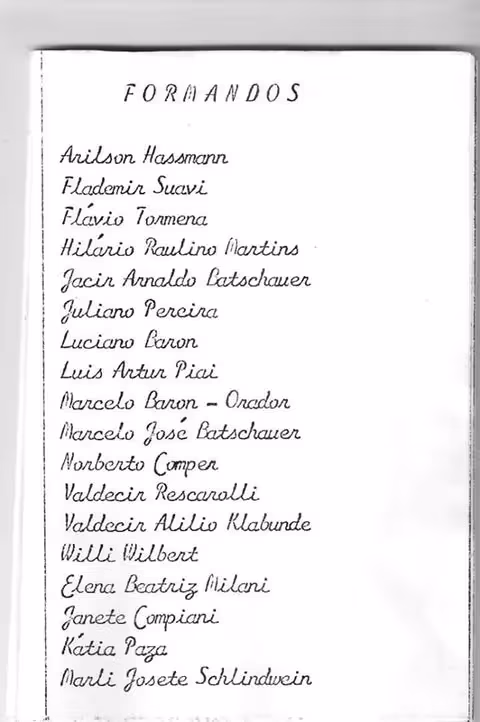 FORMANDOS
Arilson Hassmann
Flademir Suavi
Flávio Tormena
Hilário Raulino Martins
Jacir Arnaldo Batschauer
Juliano Pereira
Luciano Baron
Luis Artur Piai
Marcelo Baron - Orador
Marcelo José Batschauer
Norberto Comper
Valdecir Rescarolli
Valdecir Alilio Klabunde
Willi Wilbert
Elena Beatriz Milani
Janete Compiani
Kátia Paza
Marli Josete Schlindwein